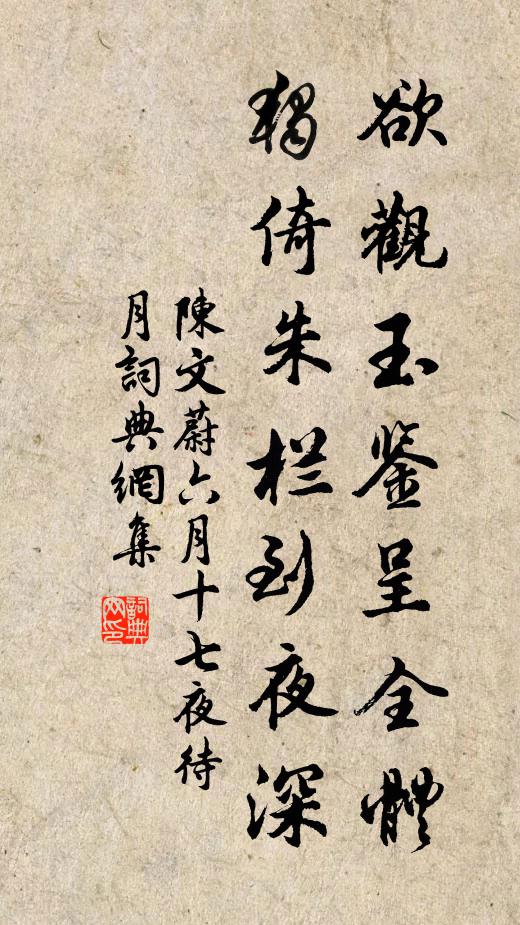 欲觀玉鉴呈全體
獨倚朱栏到夜深
陳文蔚六月十七夜待
月詞典網集
詞典
网印